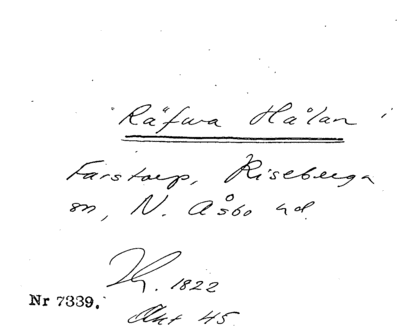 "Räfwa Hålan i
Farstorp, Riseberga
sn, N. Åsbo hd.
1822
Nr 7339.
Akt 45